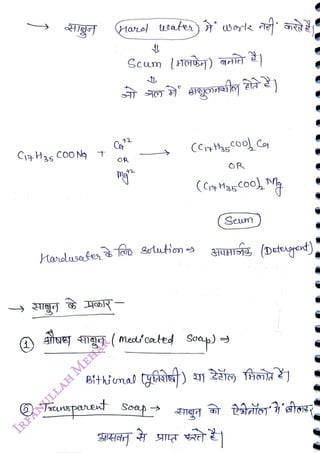 → साबुन (Hard water) में work नहीं करते है|
⇓
Scum (मलफेन) बनाते है|
⇓
जो जल में अघुलनशील होते है|
C17H35COONa + Ca+2 OR Mg+2 → (C17H35COO)2 Ca
OR
(C17H35COO)2 Mg
Scum
Hardwater के लिए solution → अपमार्जक (Detergent)
→ साबुन के प्रकार -
① औषध साबुन (medicated soap) ⇒
Bithional (पूतिरोधी) या डेटॉल मिलाते है|
② Transparent soap → साबुन को ऐथेनॉल में घोलकर
आसवन से प्राप्त करते है|
IRFANULLAH MEHAR